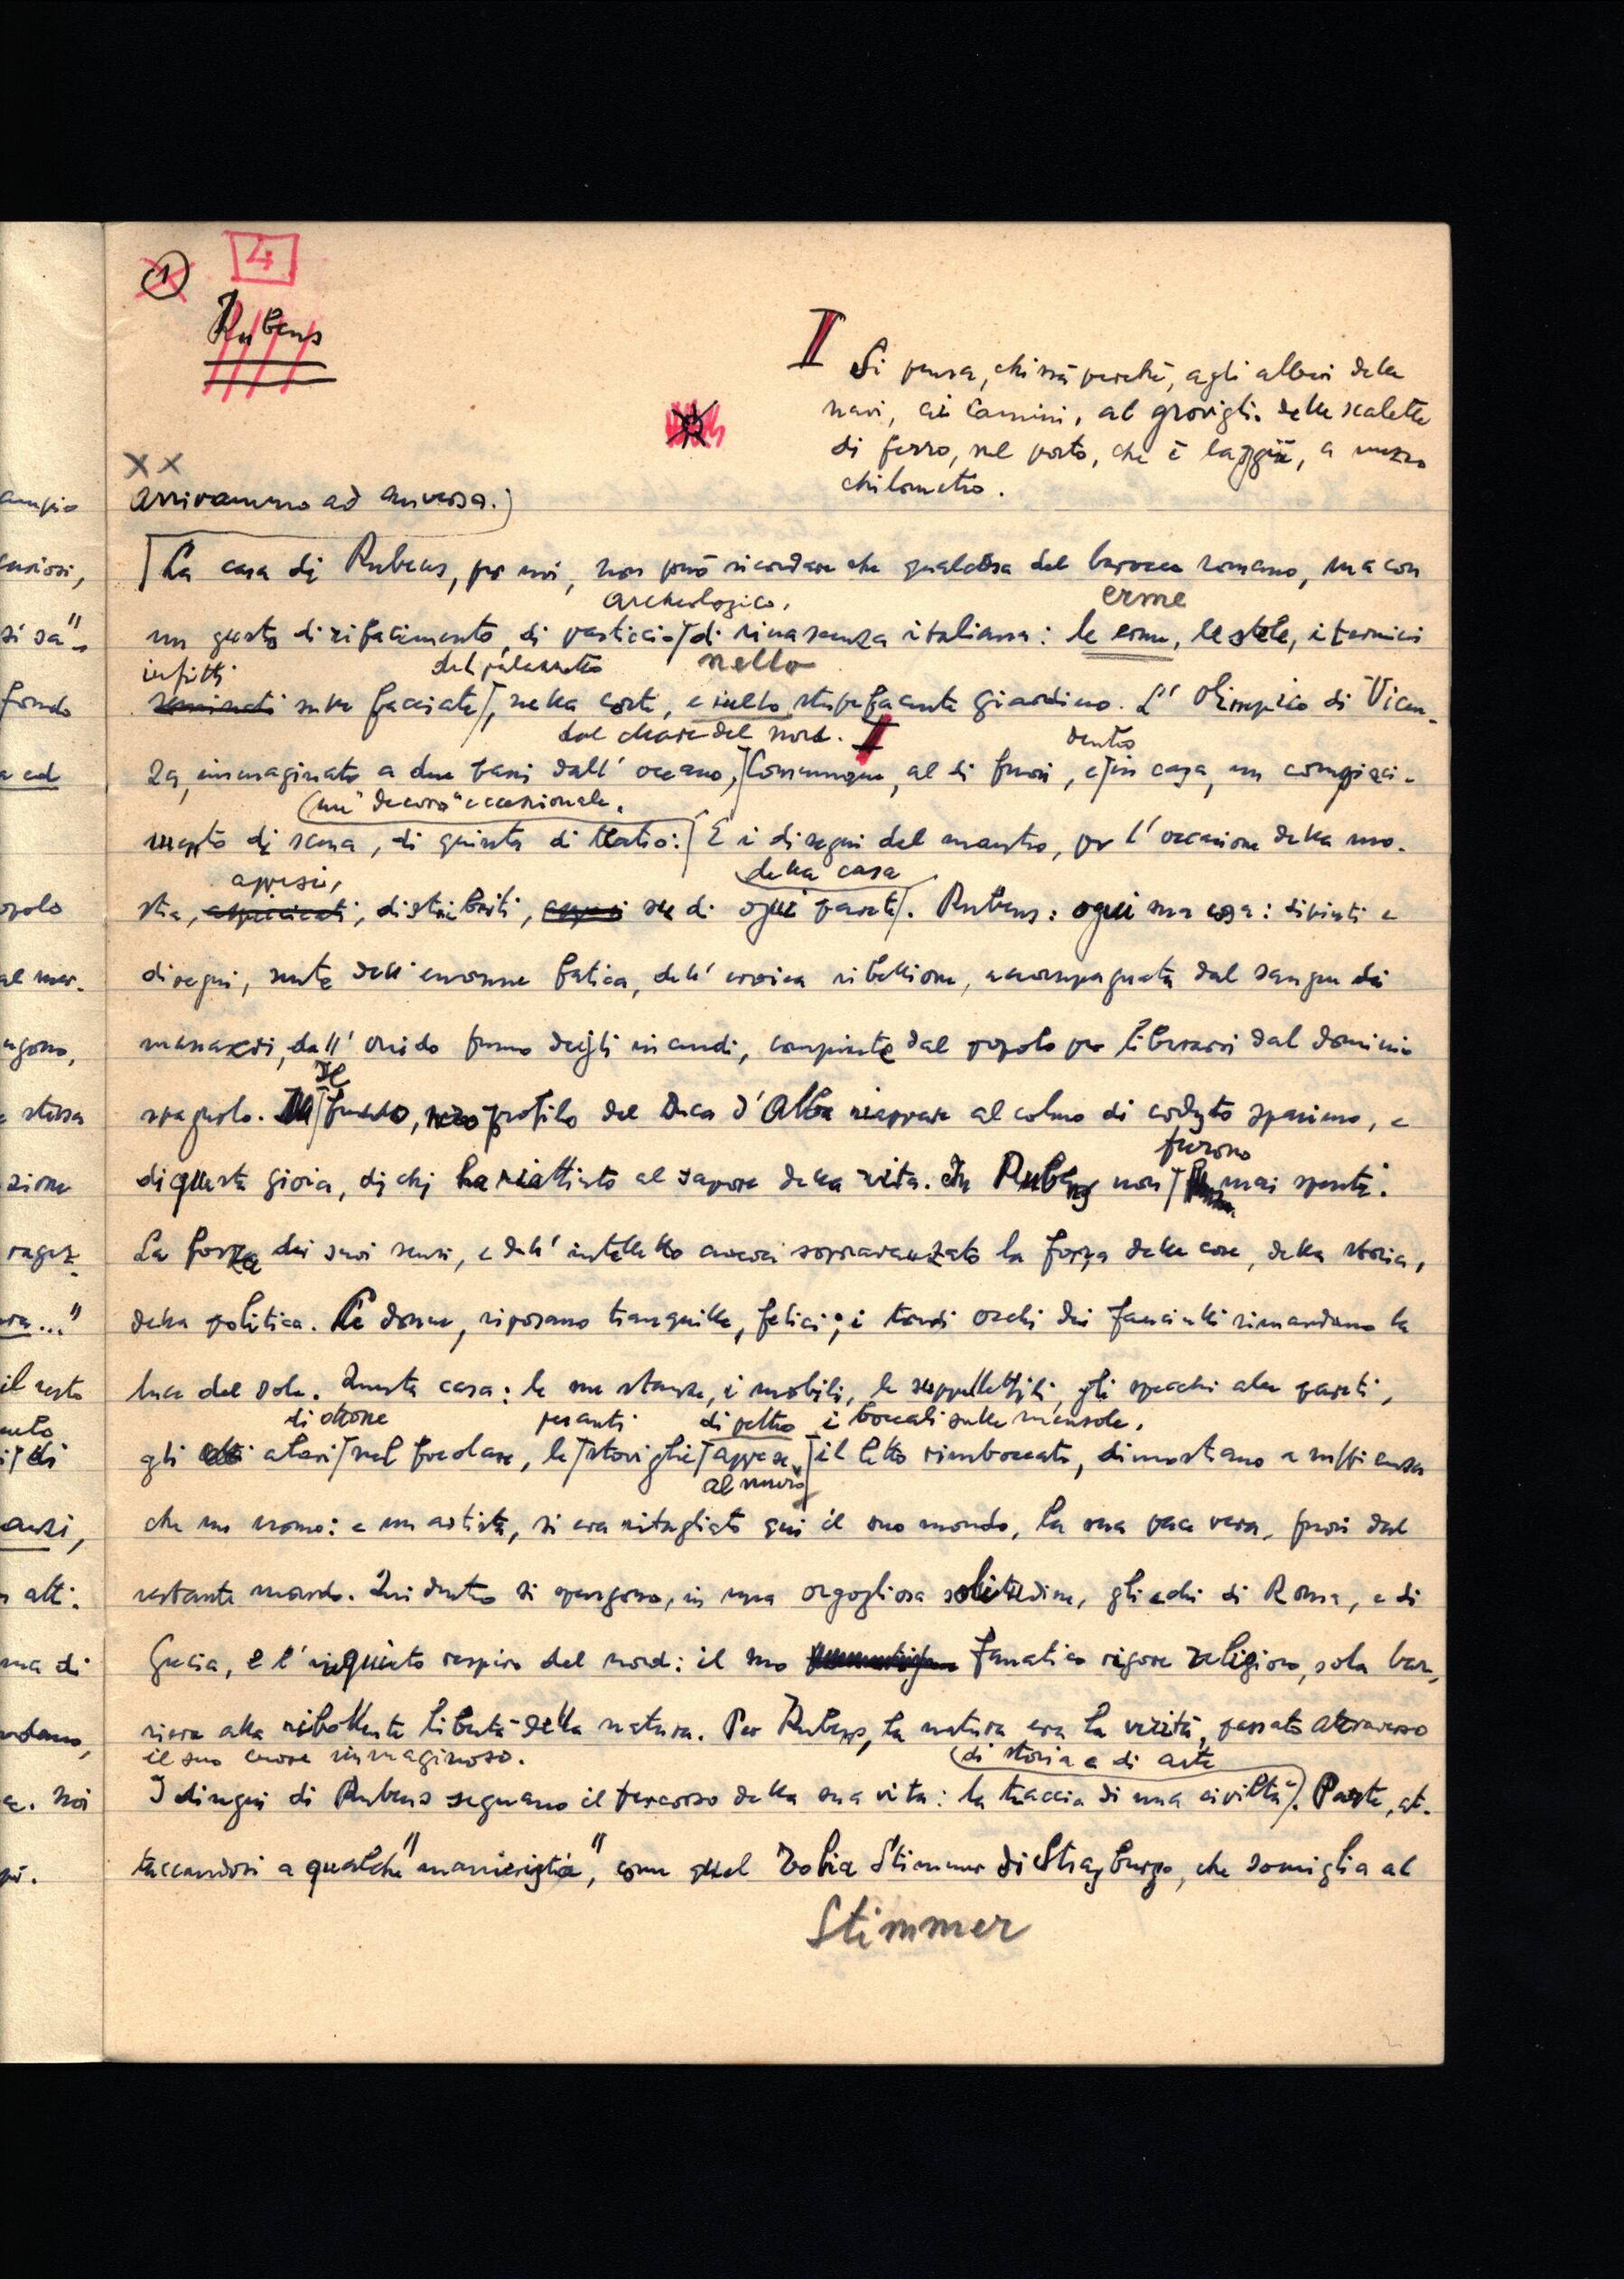 1
4
Rubens
I Si pensa, chissà perchè, agli alberi delle
navi, ai camini, al groviglio delle scalette
di ferro, nel porto, che è laggiù, a mezzo
chilometro.
XX
arrivammo ad anversa.
La casa di Rubens, per noi, non può ricordare che qualcosa del barocco romano, ma con
archeologico, erme
un gusto di rifacimento, di pasticcio di rinascenza italiana: le erme, le stele, i termini
infitti del palazzetto nello
seminati sulle facciate, nella corte, e nello stupefacente giardino. L' Olimpico di Vicen-
dal mare del nord. I dentro
za, immaginato a due passi dall' oceano, Comunque, al di fuori, e in casa, un compiaci-
un "decoro" eccezionale.
mento di scena, di quinta di teatro: E i disegni del maestro, per l' occasione della mo-
appesi, della casa
stra, appiccicati, distribuiti, appesi su di ogni parete. Rubens: ogni sua cosa: dipinti e
disegni, sente dell' enorme fatica, dell' eroica ribellione, accompagnata dal sangue dei
massacri, dall' orrido fumo degli incendi, compiuta dal popolo per liberarsi dal dominio
Il
spagnolo. profilo del Duca d'Alba riappare al colmo di codesto spasimo, e
furono
di questa gioia, di chi ha riattinto al sapore della vita. In Rubens non mai spenti.
La forza dei suoi sensi, e dell' intelletto aveva sopravanzato la forza delle cose, della storia,
della politica. Le donne, riposano tranquille, felici; i tondi occhi dei fanciulli rimandano la
luce del sole. Questa casa: le sue stanze, i mobili, le suppellettili, gli specchi alle pareti,
di ottone pesanti di peltro i boccali sulle mensole,
gli alari nel focolare, le stoviglie appese, il letto rimboccato, dimostrano a sufficienza
al muro
che un uomo: e un artista, si era ritagliato qui il suo mondo, la sua pace vera, fuori dal
restante mondo. Qui dentro si spengono, in una orgogliosa solitudine, gli echi di Roma, e di
Grecia, e l' inquieto respiro del nord: il suo fanatico rigore religioso, sola bar-
riera alla ribollente libertà della natura. Per Rubens, la natura era la verità, passata attraverso
il suo cuore immaginoso. di storia e di arte
I disegni di Rubens segnano il percorso della sua vita: la traccia di una civiltà. Parte, at-
taccandosi a qualche "manierista", come quel Tobia Stimmer di Strasburgo, che somiglia al
Stimmer